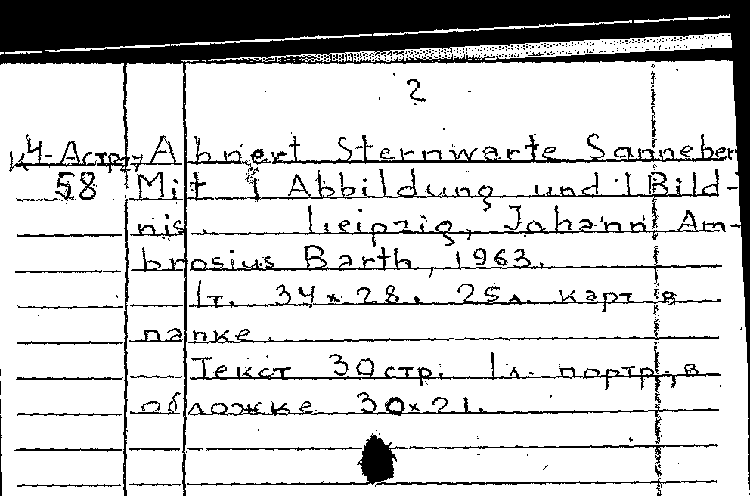 2
К4-Астр., Ahnert Sternwarte Sanneber
58 Mit 1 Abbildung und 1 Bild-
nis. Leipzig, Johann Am-
brosius Barth, 1963.
1т. 34×28. 25л. карт в
папке.
Текст 30стр. 1л. портр., в
обложке 30×21.